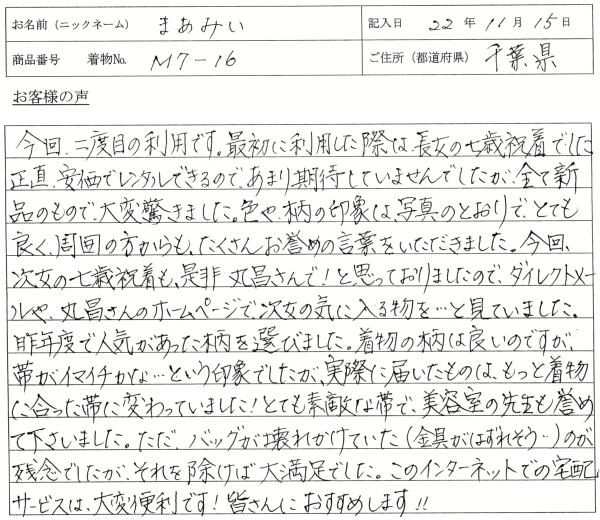 お名前（ニックネーム） まぁみぃ 記入日 22 年 11 月 15 日
商品番号 着物No. M7-16 ご住所（都道府県） 千葉県
お客様の声
今回、二度目の利用です。最初に利用した際は、長女の七歳祝着でした。
正直、安価でレンタルできるので、あまり期待していませんでしたが、全て新
品のもので、大変驚きました。色や、柄の印象は、写真のとおりで、とても
良く、周囲の方からも、たくさんお誉めの言葉をいただきました。今回、
次女の七歳祝着も、是非 丸昌さんで！と思っておりましたので、ダイレクトメー
ルや、丸昌さんのホームページで、次女の気に入る物を…と見ていました。
昨年度で人気があった柄を選びました。着物の柄は良いのですが、
帯がイマイチかな…という印象でしたが、実際に届いたものは、もっと着物
に合った帯に変わっていました！とても素敵な帯で、美容室の先生も誉め
て下さいました。ただ、バッグが壊れかけていた（金具がはずれそう…）のが
残念でしたが、それを除けば大満足でした。このインターネットでの宅配
サービスは、大変便利です！皆さんにおすすめします!!